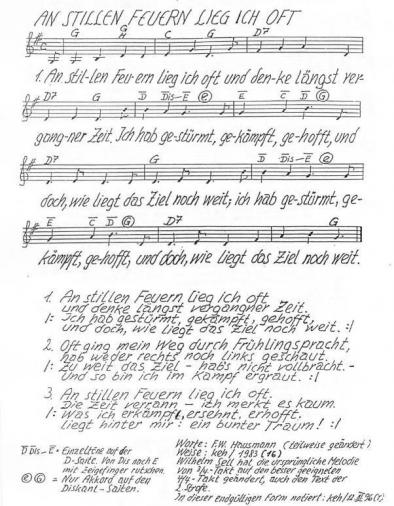 AN STILLEN FEUERN LIEG ICH OFT
G G/H C G D7
1. An stil-len Feu-ern lieg ich oft und den-ke längst ver-
D7 G D Dis–E (e) E C D (G)
gang-ner Zeit. Ich hab ge-stürmt, ge-kämpft, ge-hofft, und
D7 G D Dis–E (e)
doch, wie liegt das Ziel noch weit; ich hab ge-stürmt, ge-
E C D (G) D7 G
kämpft, ge-hofft, und doch, wie liegt das Ziel noch weit.
1. An stillen Feuern lieg ich oft
und denke längst vergangner Zeit.
|: Ich hab gestürmt, gekämpft, gehofft,
und doch, wie liegt das Ziel noch weit. :|
2. Oft ging mein Weg durch Frühlingspracht,
hab weder rechts noch links geschaut.
|: Zu weit das Ziel – hab's nicht vollbracht –
und so bin ich im Kampf ergraut. :|
3. An stillen Feuern lieg ich oft.
Die Zeit verrann – ich merkt es kaum.
|: Was ich erkämpft, ersehnt, erhofft,
liegt hinter mir: ein bunter Traum! :|
D Dis–E = Einzeltöne auf der
D-Saite. Von Dis nach E
mit Zeigefinger rutschen.
(e) (G) = Nur Akkord auf den
Diskant-Saiten.
Worte: F.W. Hausmann (teilweise geändert)
Weise: keh / 1983 (16)
Wilhelm Sell hat die ursprüngliche Melodie
vom 3/4-Takt auf den besser geeigneten
4/4-Takt geändert, auch den Text der
2. Strofe.
In dieser endgültigen Form notiert: keh